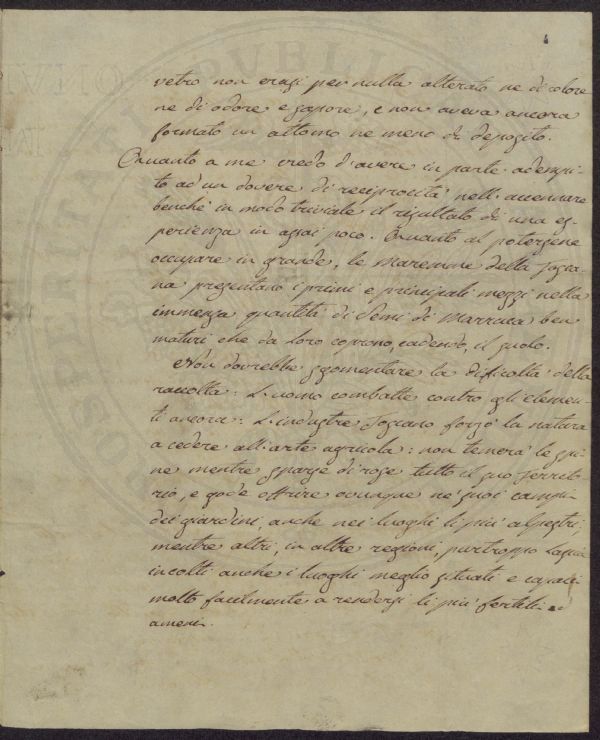 vetro non erasi per nulla alterato ne di colore
ne di odore e sapore, e non aveva ancora
formato un attomo ne meno di deposito.
Quanto a me credo d'avere in parte adempi-
to ad un dovere di reciprocità nell'accennare
benchè in modo triviale il risultato di una es-
perienza in assai poco. Quanto al potersene
occupare in grande, le Maremme della Tosca-
na presentano i primi e principali mezzi nella
immensa quantità di Semi di Marruca ben
maturi che da loro coprono, cadendo, il suolo.
Non dovrebbe sgomentare la dificoltà della
raccolta: L'uomo combatte contro gli elemen-
ti ancora: L'industre Toscano forzò la natura
a cedere all'arte agricola: non temerà le spi-
ne mentre sparge di rose tutto il suo Territo-
rio, e gode offrire ovunque ne' suoi campi
dei giardini, anche nei luoghi li più alpestri,
mentre altri, in altre regioni, purtroppo lascia
incolti anche i luoghi meglio situati e capaci
molto facilmente a rendersi li più fertili ed
ameni.
HOSPITALITATI PUBLIC